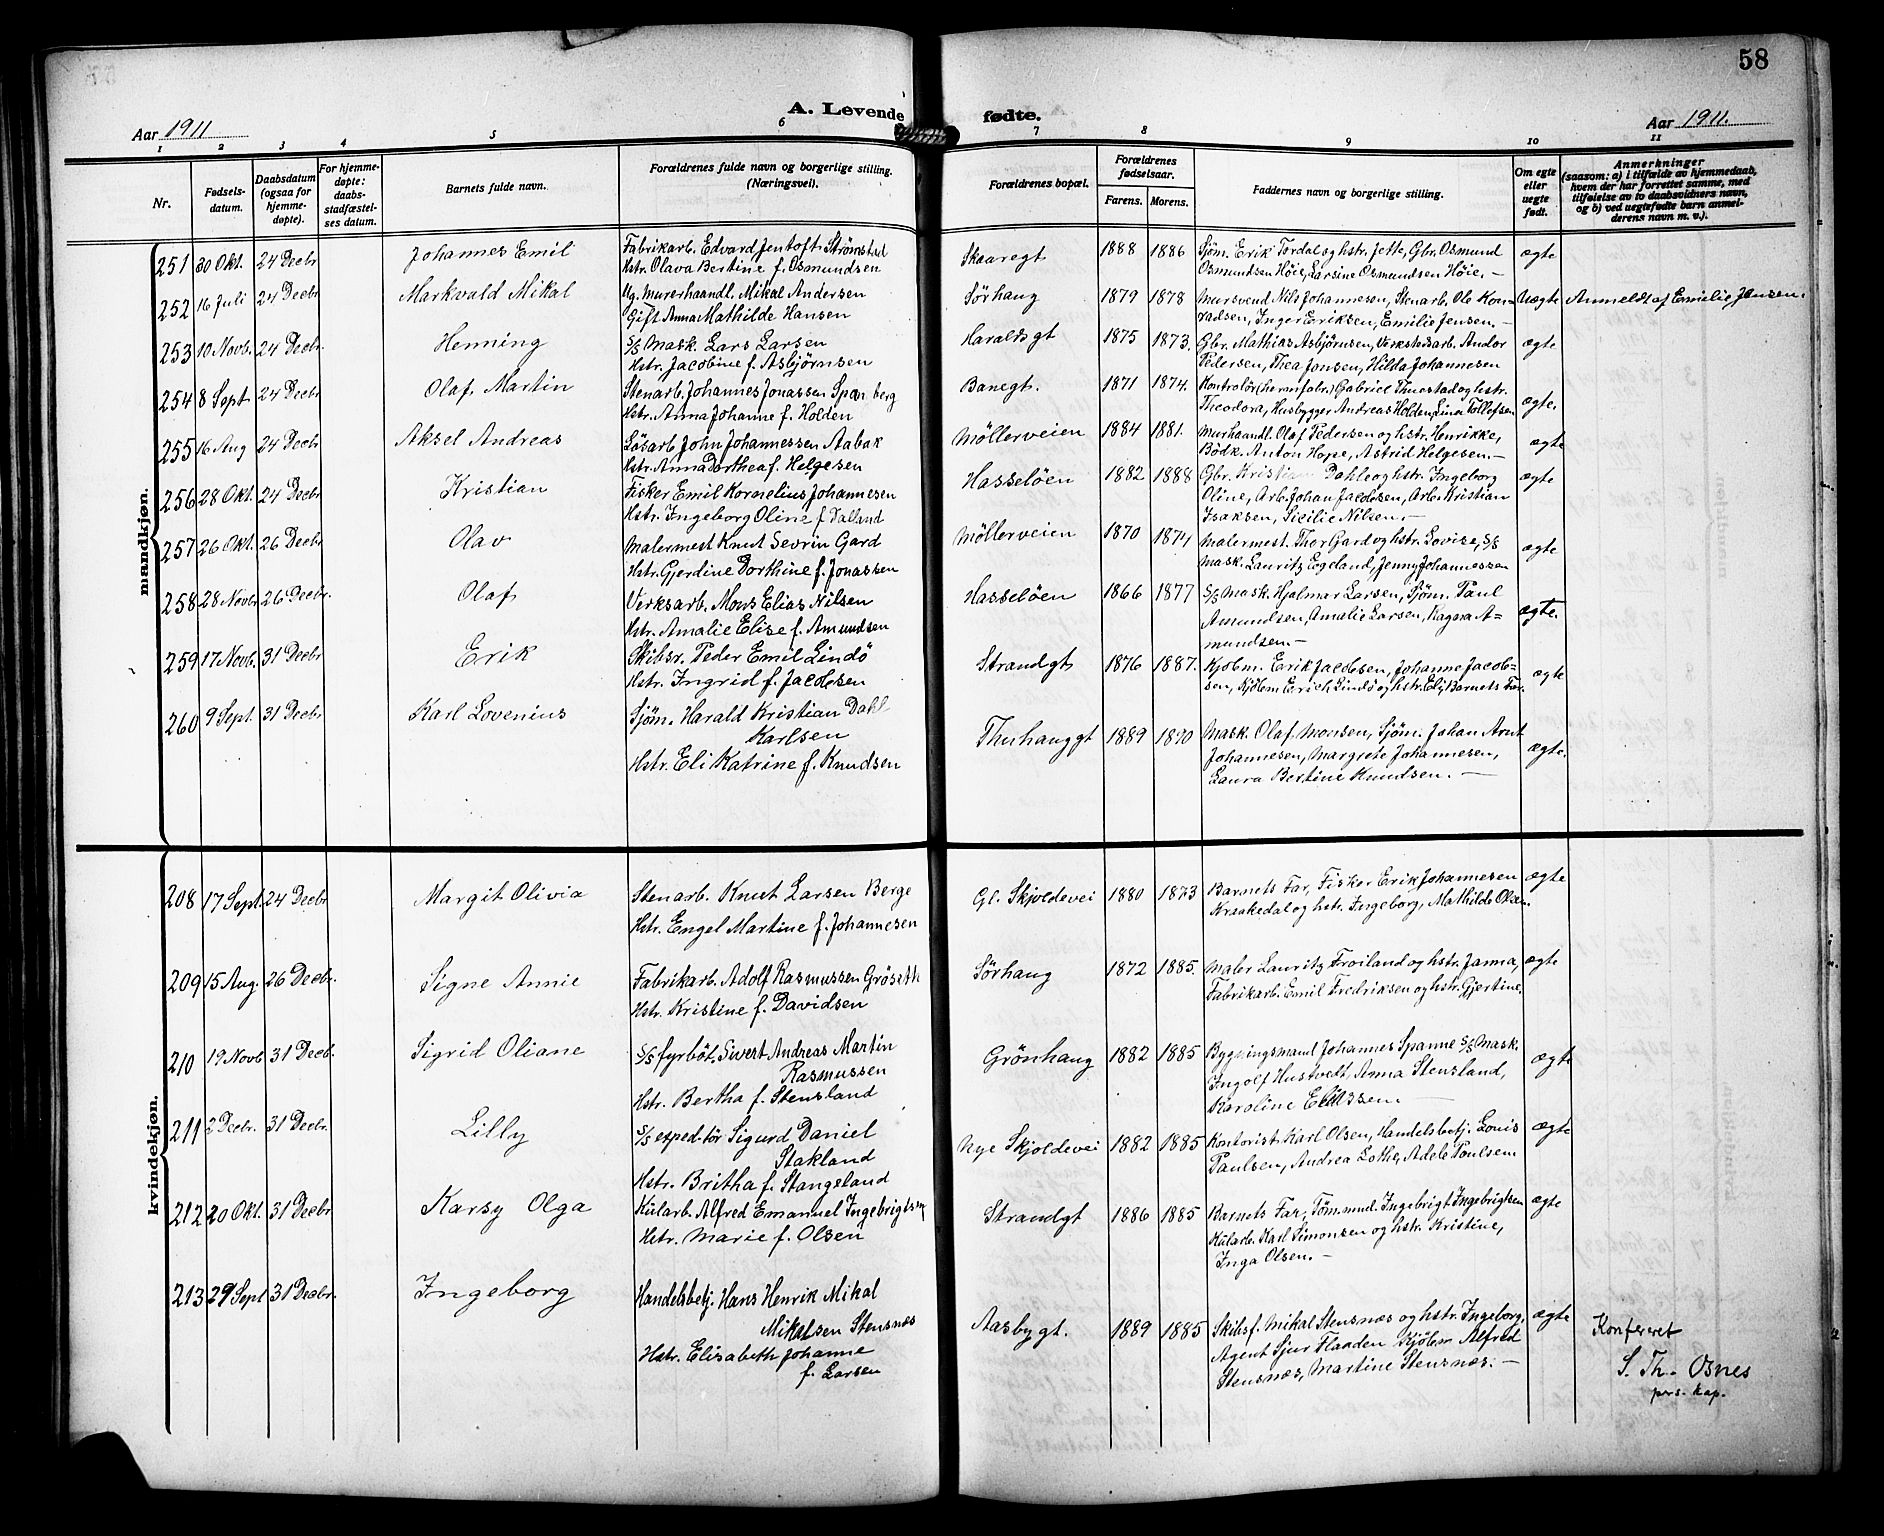 58
A. Levende fødte.
Aar 1911
Aar 1911.
1 2 3 4 5 6 7 8 9 10 11
Nr.
Fødsels-
datum.
Daabsdatum
(ogsaa for
hjemme-
døpte).
For hjemme-
døpte:
daabs-
stadfæstel-
ses datum.
Barnets fulde navn.
Forældrenes fulde navn og borgerlige stilling.
(Næringsvei).
Forældrenes bopæl.
Forældrenes
fødselsaar.
Farens. Morens.
Faddernes navn og borgerlige stilling.
Om egte
eller
uegte
født.
Anmerkninger
(saasom: a) i tilfælde av hjemmedaab,
hvem der har forrettet samme, med
tilføielse av to daabsvidners navn,
og b) ved uegtefødte barn anmel-
derens navn m. v.).
mandkjøn.
251 30 Okt. 24 Decbr Johannes Emil
Fabrikarb. Edvard Jentoft Strömstad
Hstr. Olava Bertine f. Osmundsen
Skaaregt 1888 1886
Sjöm. Erik Tordal og hstr. Jette, Gbr. Osmund
Osmundsen Höie, Larsine Osmundsen Höie. —
ægte
252 16 Juli 24 Decbr Markvald Mikal
Ug. murerhaandl. Mikal Andersen
Gift Anna Mathilde Hansen
Sörhaug 1879 1878
Mursvend Nils Johannesen, Stenarb. Ole Kon-
radsen, Inger Eriksen, Emilie Jensen. —
Uægte Anmeldt af Emilie Jensen.
253 10 Novb. 24 Decbr. Henning
S/S Mask. Lars Larsen
Hstr. Jacobine f. Asbjörnsen
Haraldsgt 1875 1873.
Gbr. Mathias Asbjörnsen, Verkstedsarb. Andor
Pedersen, Thea Jansen, Hilda Johannesen
ægte
254 8 Sept 24 Decbr Olaf Martin
Stenarb. Johannes Jonassen Spanberg
Hstr. Anna Johanne f. Holden
Banegt. 1871 1874.
Kontrolör (hermfabr.) Gabriel Thuestad og hstr.
Theodora, Husbygger Andreas Holden, Lina Tollefsen
ægte.
255 16 Aug 24 Decbr Aksel Andreas
Lösarb. John Johannessen Aabak
Hstr. Anna Dorthea f. Helgesen
Möllerveien 1884 1881.
Murhaandl. Olaf Pedersen og hstr. Henrikke,
Bödk. Anton Hope, Astrid Helgesen. —
ægte
256 28 Okt. 24 Decbr Kristian
Fisker Emil Kornelius Johannesen
Hstr. Ingeborg Oline f. Dalland
Hasselöen 1882 1888
Gbr. Kristian Dahle og hstr. Ingeborg
Oline, Arb. Johan Jacobsen, Arb. Kristian
Isaksen, Sicilie Nilsen. —
ægte
257 26 Okt. 26 Decbr Olav
Malermest Knut Sevrin Gard
Hstr. Gjerdine Dorthine f. Jonassen
Möllerveien 1870 1871
Malermest. Thor Gard og hstr. Lovise, S/S
Mask. Lauritz Eegeland, Jenny Johannessen
ægte
258 28 Novbr 26 Decbr. Olaf
Verksarb. Mons Elias Nilsen
Hstr. Amalie Elise f. Amundsen
Hasselöen 1866 1877
S/S Mask. Hjalmar Larsen, Sjöm. Paul
Amundsen, Amalie Larsen, Ragna A-
mundsen. —
ægte.
259 17 Novb. 31 Decbr Erik
Skibsr. Peder Emil Lindö
Hstr. Ingrid f. Jacobsen
Strandgt 1876 1887.
Kjöbm. Erik Jacobsen, Johanne Jacob-
sen, Kjöbm Erich Lindö og hstr. Eli, Barnets Far.
ægte
260 9 Sept. 31 Decbr Karl Lovenius
Sjöm. Harald Kristian Dahl
Karlsen
Hstr. Eli Katrine f. Knudsen
Thuhauggt 1889 1890
Mask. Olaf Monsen, Sjöm. Johan Arnt
Johannesen, Margrete Johannesen,
Laura Bertine Knudsen. —
ægte.
kvindekjøn.
208 17 Sept. 24 Decbr Margit Olivia
Stenarb. Knut Larsen Berge
Hstr. Engel Martine f. Johannesen
Gl. Skjoldevei 1880 1873
Barnets Far, Fisker Erik Johannesen
Kraakedal og hstr. Ingeborg, Mathilde Olsen.
ægte
209 15 Aug. 26 Decbr. Signe Annie
Fabrikarb. Adolf Rasmussen Gröseth
Hstr. Kristine f. Davidsen
Sörhaug 1872 1885.
Maler Lauritz Froiland og hstr. Janna,
Fabrikarb. Emil Fredriksen og hstr. Gjertine.
ægte
210 19 Novb 31 Decb. Sigrid Oliane
S/S fyrböt. Sivert Andreas Martin
Rasmussen
Hstr. Bertha f. Stensland
Grönhaug 1882 1885
Bygningsmand Johannes Spanne S/S Mask.
Ingolf Hustvedt, Anna Stensland,
Karoline
ægte
211 2 Decbr. 31 Decbr. Lilly
S/S expeditör Sigurd Daniel
Stakland
Hstr. Britha f. Stangeland
Nye Skjoldevei 1882 1885
Kontorist Karl Olsen, Handelsbetj. Louis
Paulsen, Andrea Lothe, Adele Poulsen
ægte
212 20 Okt. 31 Decbr Karsy Olga
Kularb. Alfred Emanuel Ingebrigtsen
Hstr. Marie f. Olsen
Strandgt 1886 1885
Barnets Far, Tömmd. Ingebrigt Ingebrigtsen
Kularb. Karl Simonsen og hstr. Kristine,
Inga Olsen. —
ægte
213 29 Sept 31 Decbr. Ingeborg
Handelsbetj. Hans Henrik Mikal
Mikalsen Stensnæs
Hstr. Elisabeth Johanne
f. Larsen
Aasbygt. 1889 1885
Skibsf. Mikal Stensnæs og hstr. Ingeborg,
Agent Sjur Flaaden Kjöbm Alfred
Stensnæs, Martine Stensnæs. —
ægte
Konfereret
S. Th. Osnes
pers. kap.